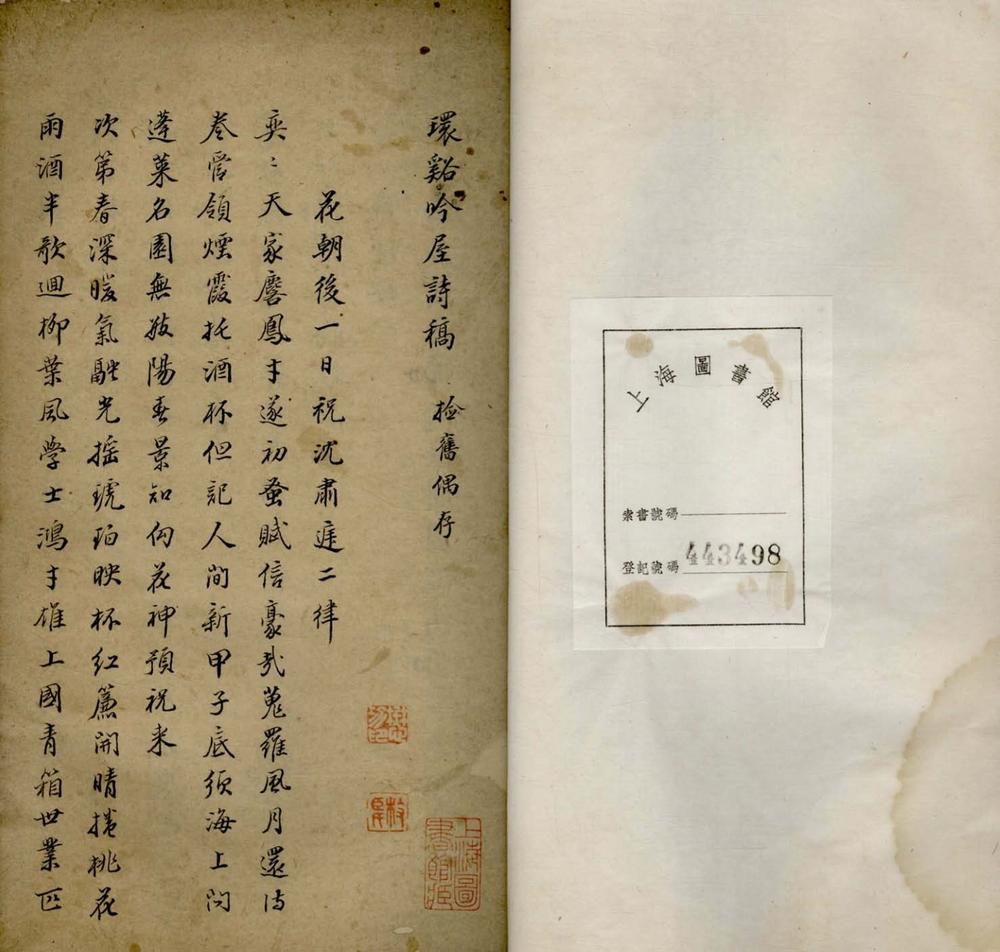 上海圖書館
索書號碼
登記號碼 443498
環谿吟屋詩稿 撿舊偶存
花朝後一日祝沈肅庭二律
奕〻天家麐鳳才遂初蚤賦信豪哉蒐羅風月還詩
卷管領煙霞托酒杯但記人間新甲子底須海上問
蓬萊名園無敵陽春景知向花神預祝來
次第春深暖氣融光搖琥珀映杯紅簾開晴捲桃花
雨酒半歌迴柳葉風學士鴻才雄上國青箱世業匹
上海圖書館藏